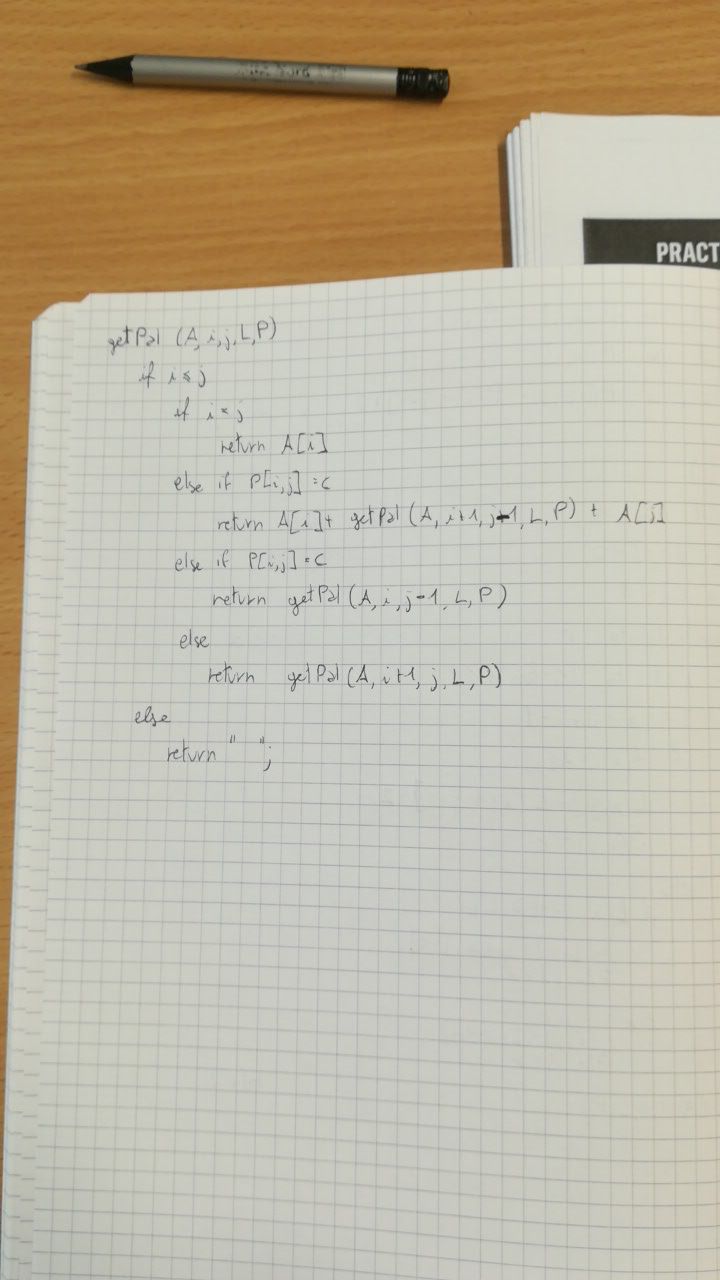 PRACT
getPal (A, i, j, L, P)
if i ≤ j
if i = j
return A[i]
else if P[i,j] = c
return A[i] + getPal (A, i+1, j-1, L, P) + A[j]
else if P[i,j] = c
return getPal (A, i, j-1, L, P)
else
return getPal (A, i+1, j, L, P)
else
return " ";